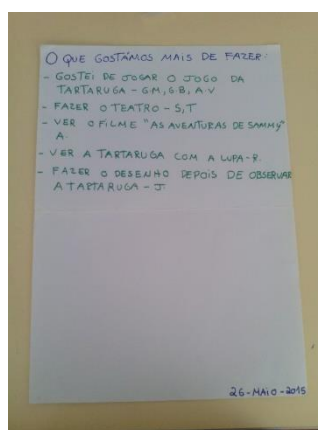 O QUE GOSTÁMOS MAIS DE FAZER:
- GOSTEI DE JOGAR O JOGO DA
TARTARUGA - G.M, G.B, A.V
- FAZER O TEATRO - S,T
- VER O FILME "AS AVENTURAS DE SAMMY"
A.
- VER A TARTARUGA COM A LUPA - R.
- FAZER O DESENHO DEPOIS DE OBSERVAR
A TARTARUGA - J
26-MAIO-2015